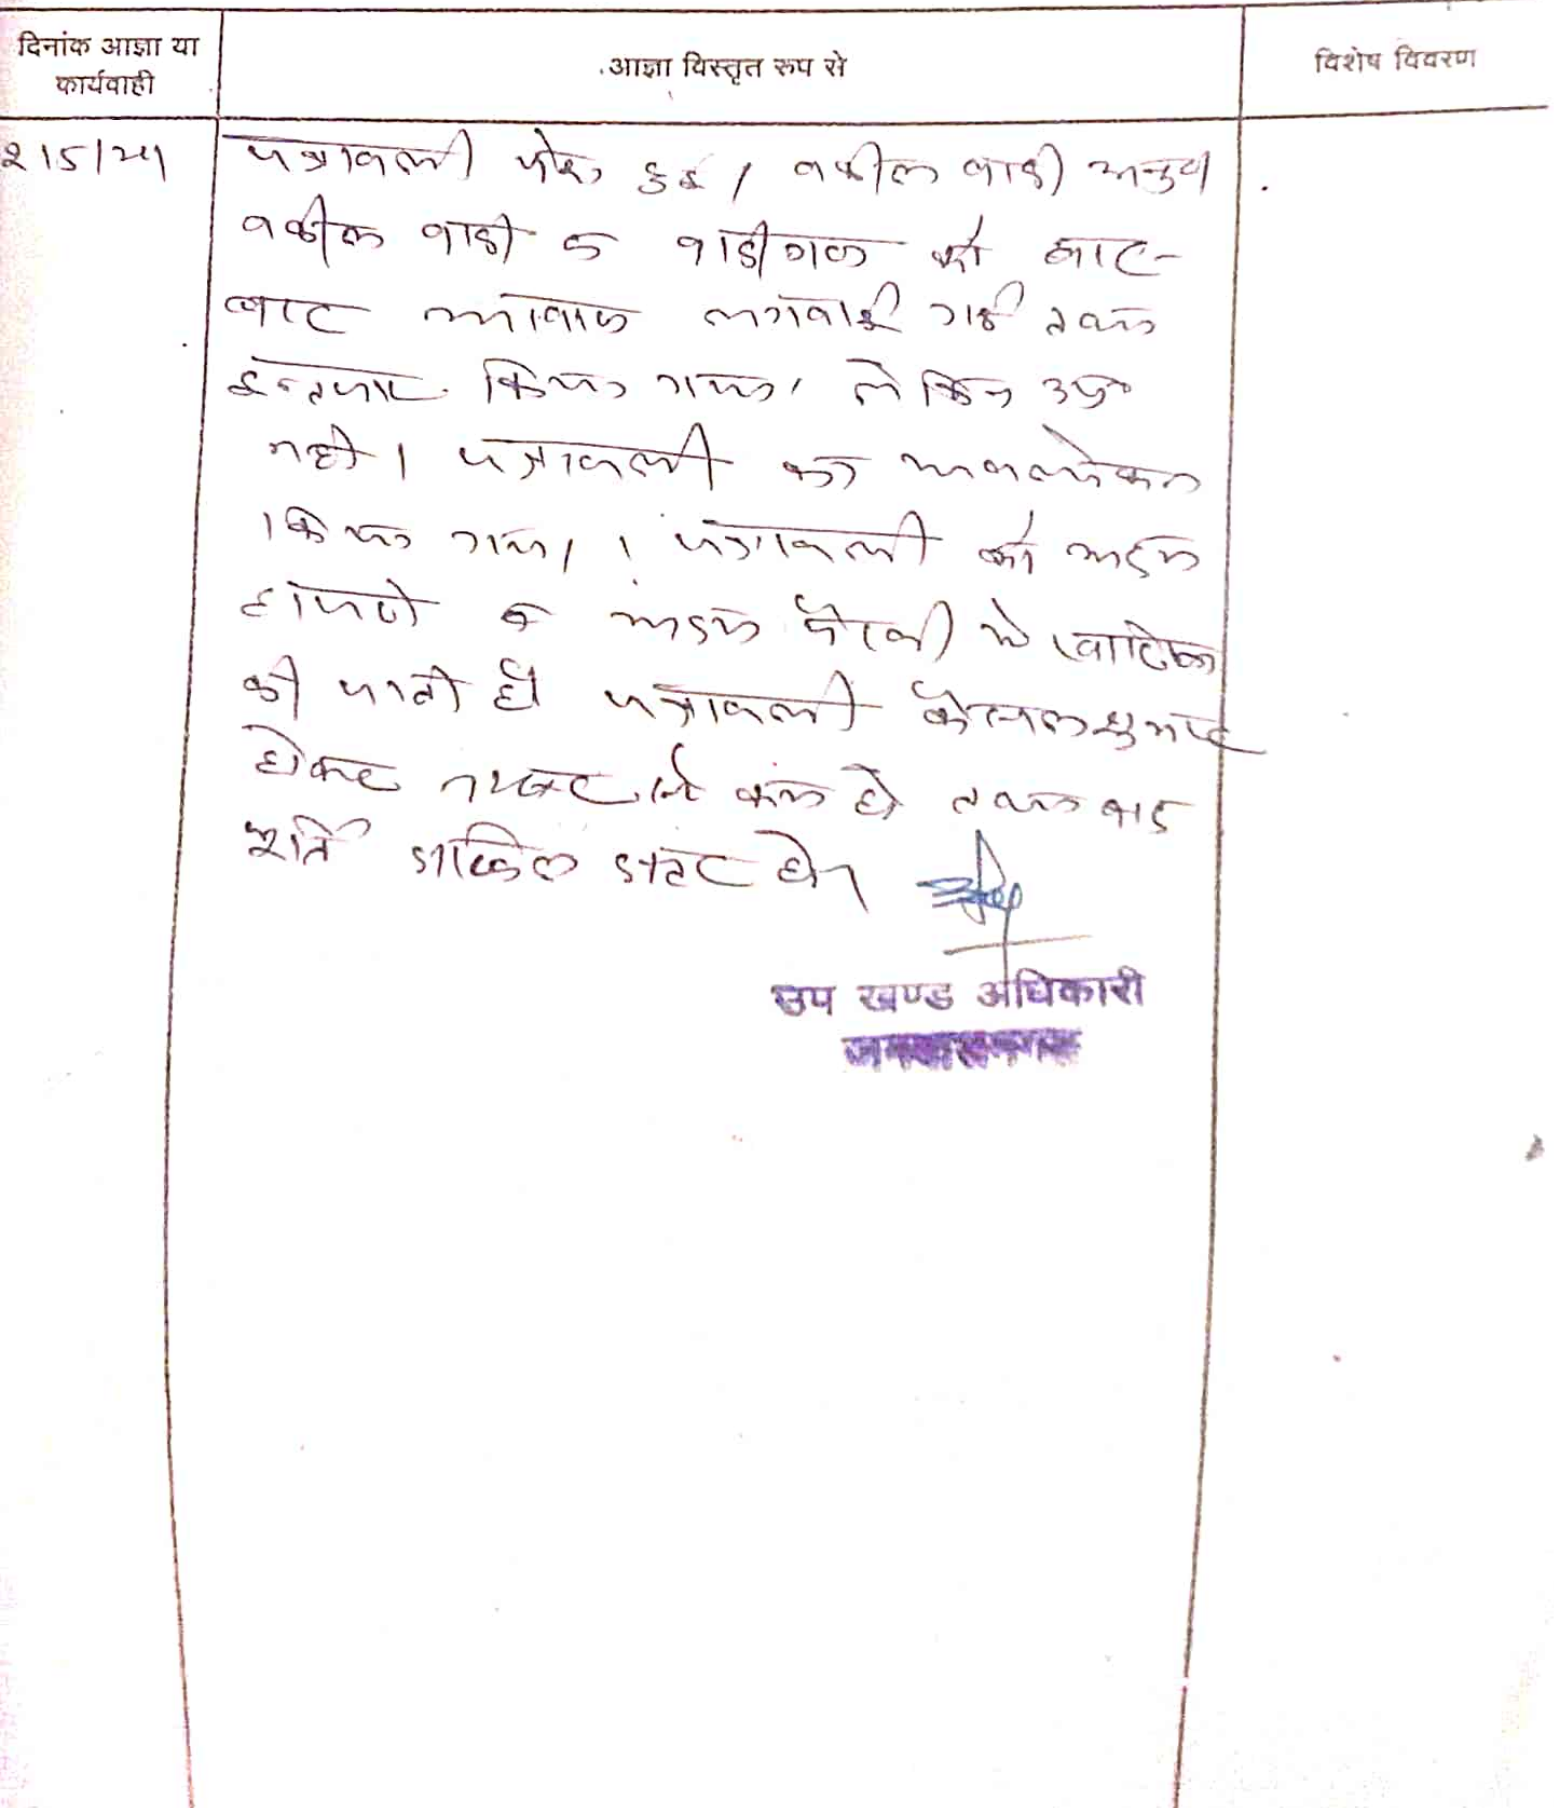 दिनांक आज्ञा या
कार्यवाही
आज्ञा विस्तृत रूप से
विशेष विवरण
2/5/24
पत्रावली पेश हुई। वकील वादी अनुप0
वकील वादी व वादीगण को बार-
बार आवाज लगवाई गई तथा
इन्तजार किया गया, लेकिन उप0
नही। पत्रावली का अवलोकन
किया गया। पत्रावली को अदम
हाजरी व अदम पैरवी मे खारिज
की जाती है पत्रावली फैसल शुमार
होकर नम्बर से कम हो तथा बाद
पूर्ति दाखिल दफ्तर हो।
उप खण्ड अधिकारी